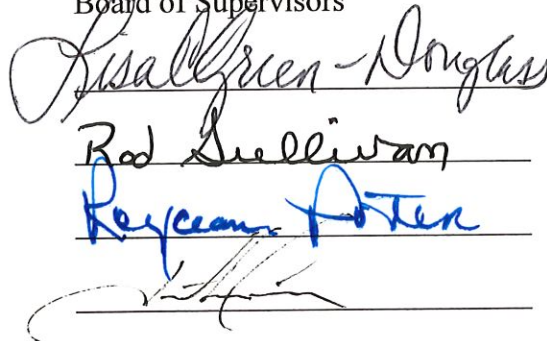 Board of Supervisors
Lisa Green-Douglass
Rod Sullivan
Royceann Porter